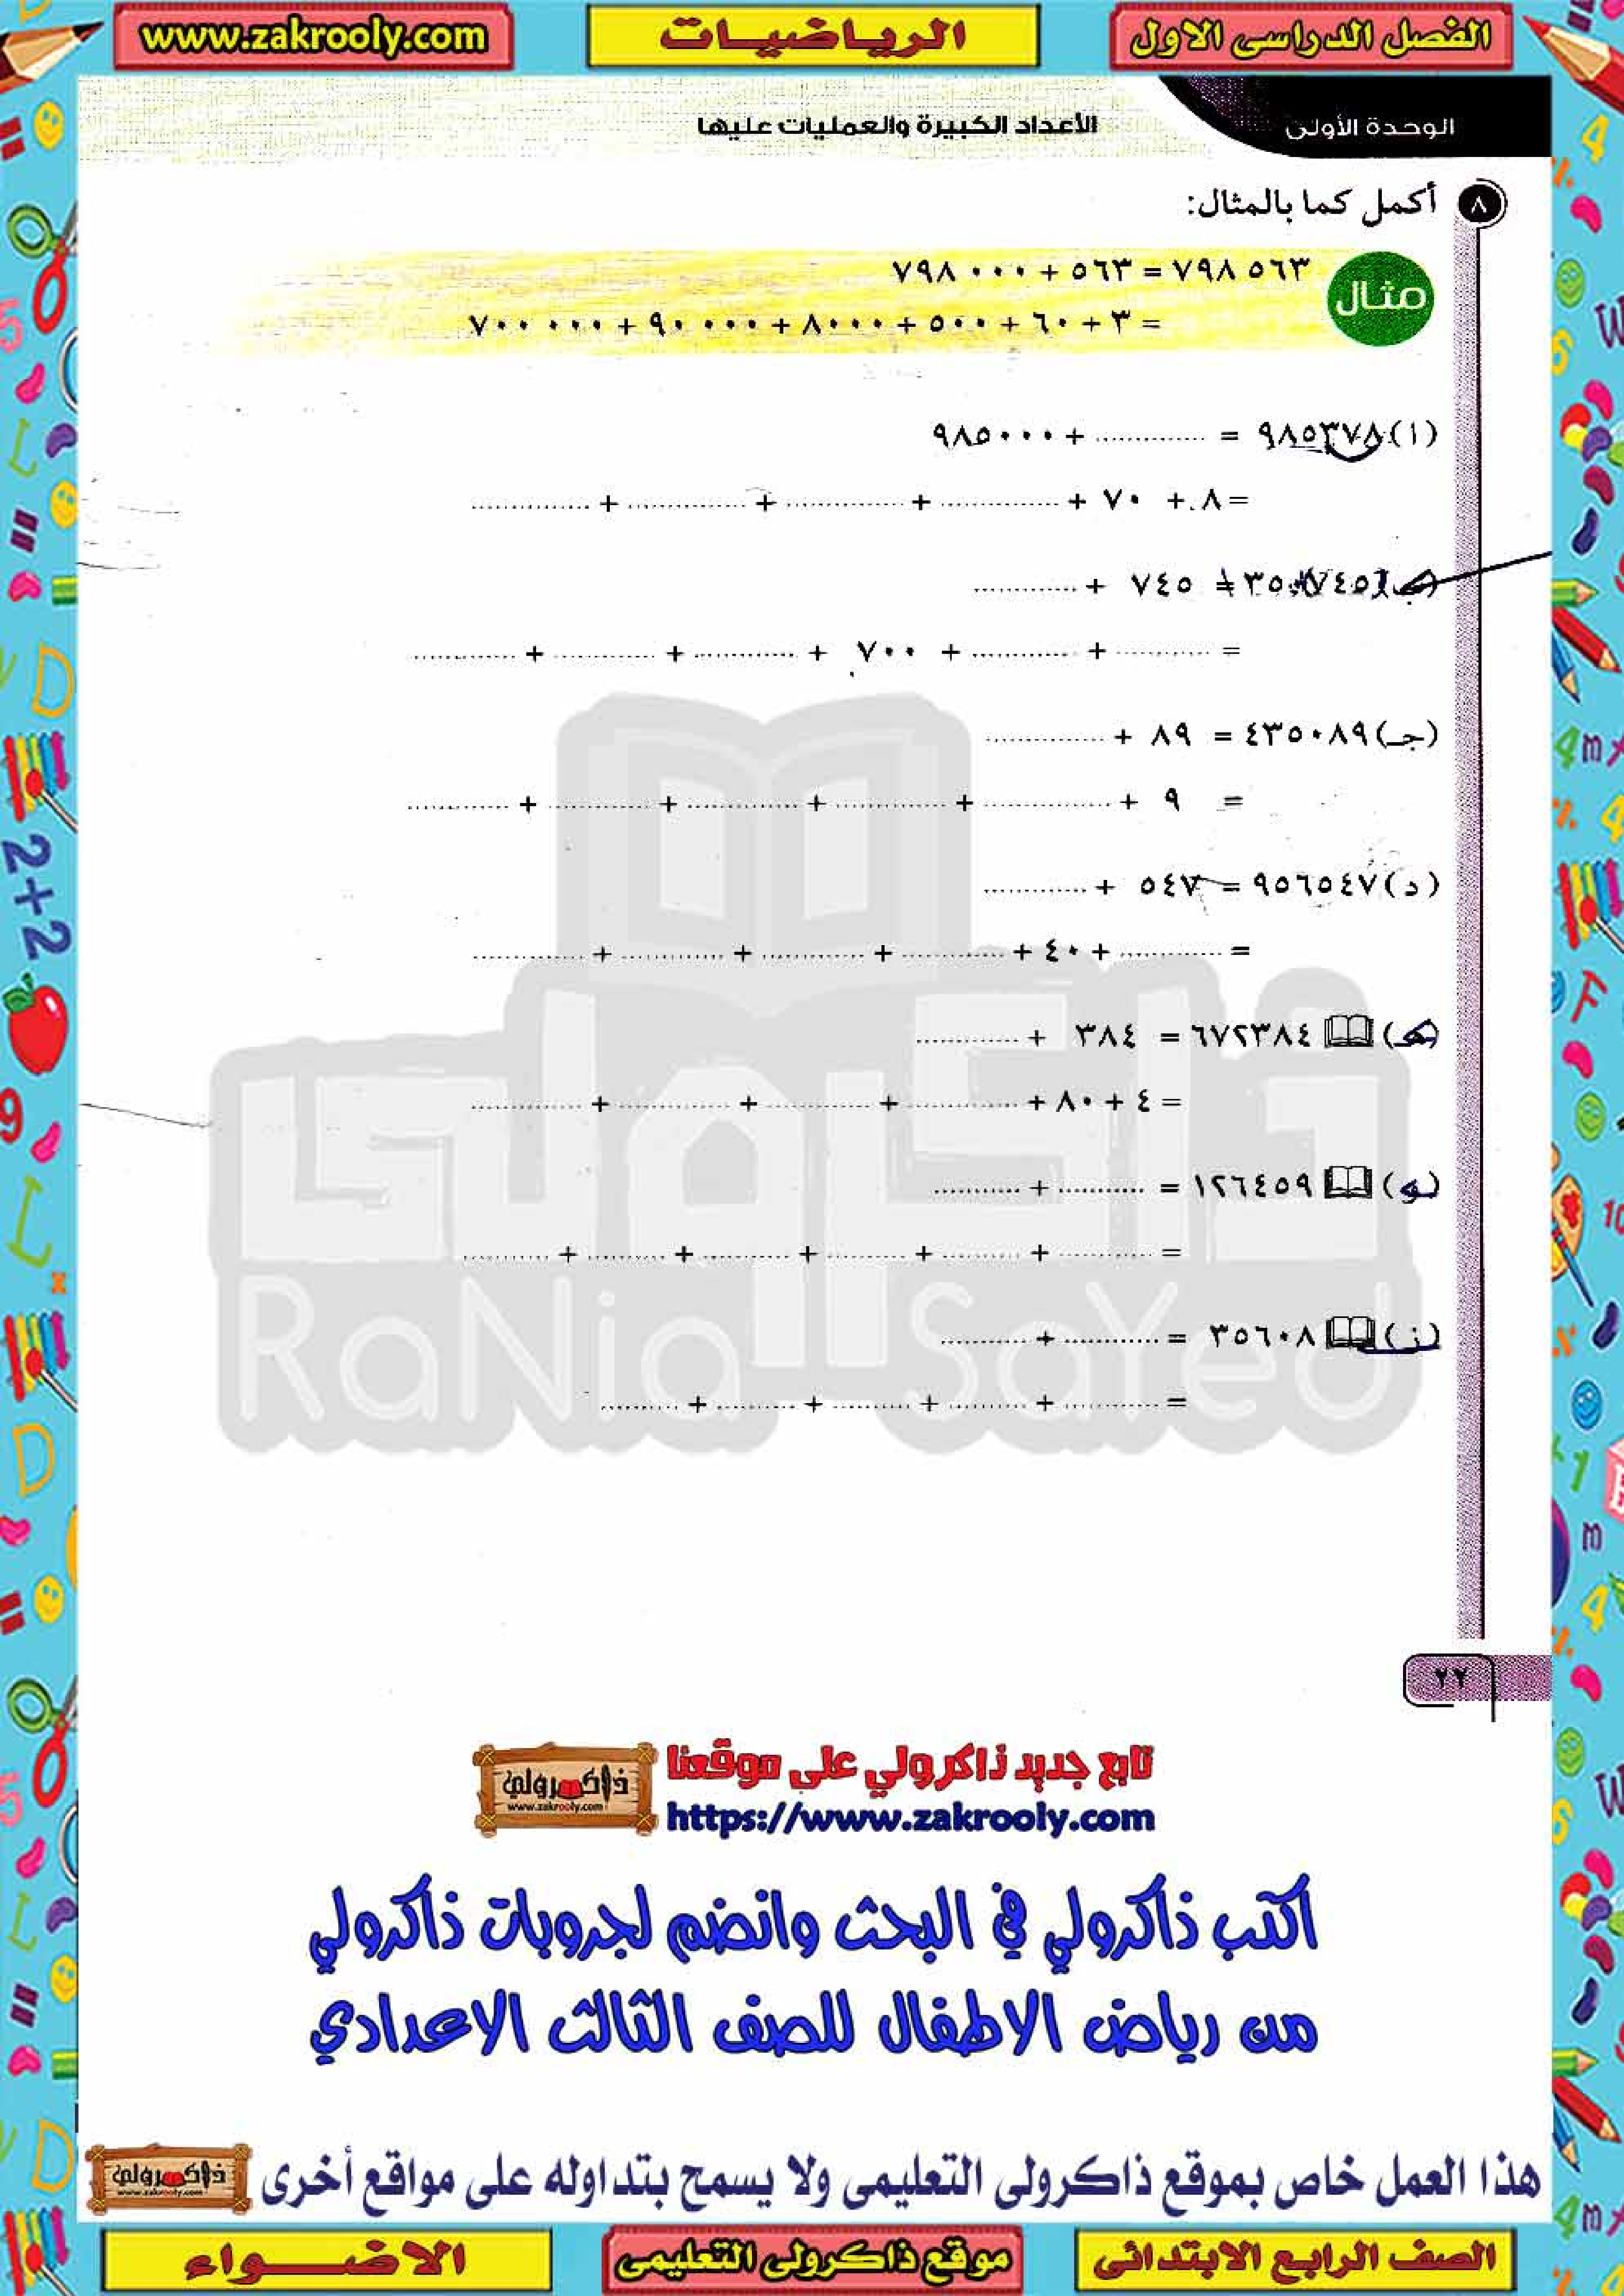 الفصل الدراسى الاول
الرياضيات
www.zakrooly.com
الوحدة الأولى
الأعداد الكبيرة والعمليات عليها
٨ أكمل كما بالمثال:
مثال
٧٩٨ ٥٦٣ = ٥٦٣ + ٧٩٨ ٠٠٠
= ٣ + ٦٠ + ٥٠٠ + ٨٠٠٠ + ٩٠ ٠٠٠ + ٧٠٠ ٠٠٠
(ا) ٩٨٥٣٧٨ = ............ + ٩٨٥٠٠٠
= ٨ + ٧٠ + ............ + ............ + ............ + ............
(ب) ٣٥٠٧٤٥ = ٧٤٥ + ............
= ............ + ............ + ٧٠٠ + ............ + ............ + ............
(جـ) ٤٣٥٠٨٩ = ٨٩ + ............
= ٩ + ............ + ............ + ............ + ............
(د) ٩٥٦٥٤٧ = ٥٤٧ + ............
= ............ + ٤٠ + ............ + ............ + ............ + ............
(هـ) ٦٧٢٣٨٤ = ٣٨٤ + ............
= ٤ + ٨٠ + ............ + ............ + ............ + ............
(و) ١٢٦٤٥٩ = ............ + ............
= ............ + ............ + ............ + ............ + ............ + ............
(ز) ٣٥٦٠٨ = ............ + ............
= ............ + ............ + ............ + ............ + ............
ذاكرولى
RaNia SaYed
٢٢
تابع جديد ذاكرولي على موقعنا
https://www.zakrooly.com
ذاكرولي
www.zakrooly.com
اكتب ذاكرولي في البحث وانضم لجروبات ذاكرولي
من رياض الاطفال للصف الثالث الاعدادي
هذا العمل خاص بموقع ذاكرولى التعليمى ولا يسمح بتداوله على مواقع أخرى
ذاكرولي
www.zakrooly.com
الصف الرابع الابتدائى
موقع ذاكرولى التعليمى
الاضواء